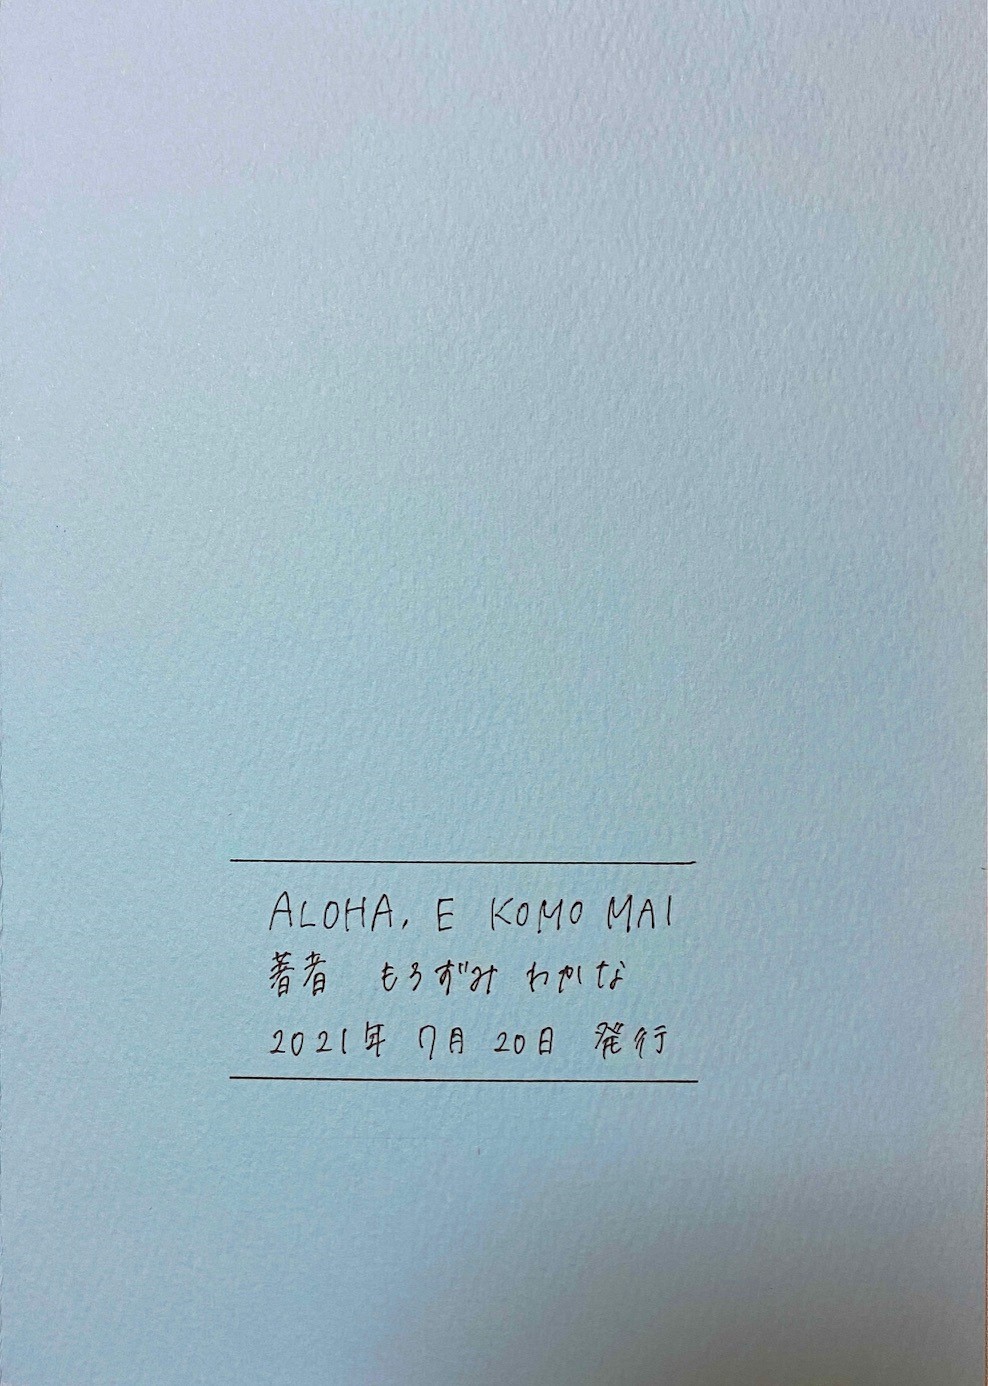 ALOHA, E KOMO MAI
著者 もろずみ わかな
2021年 7月 20日 発行